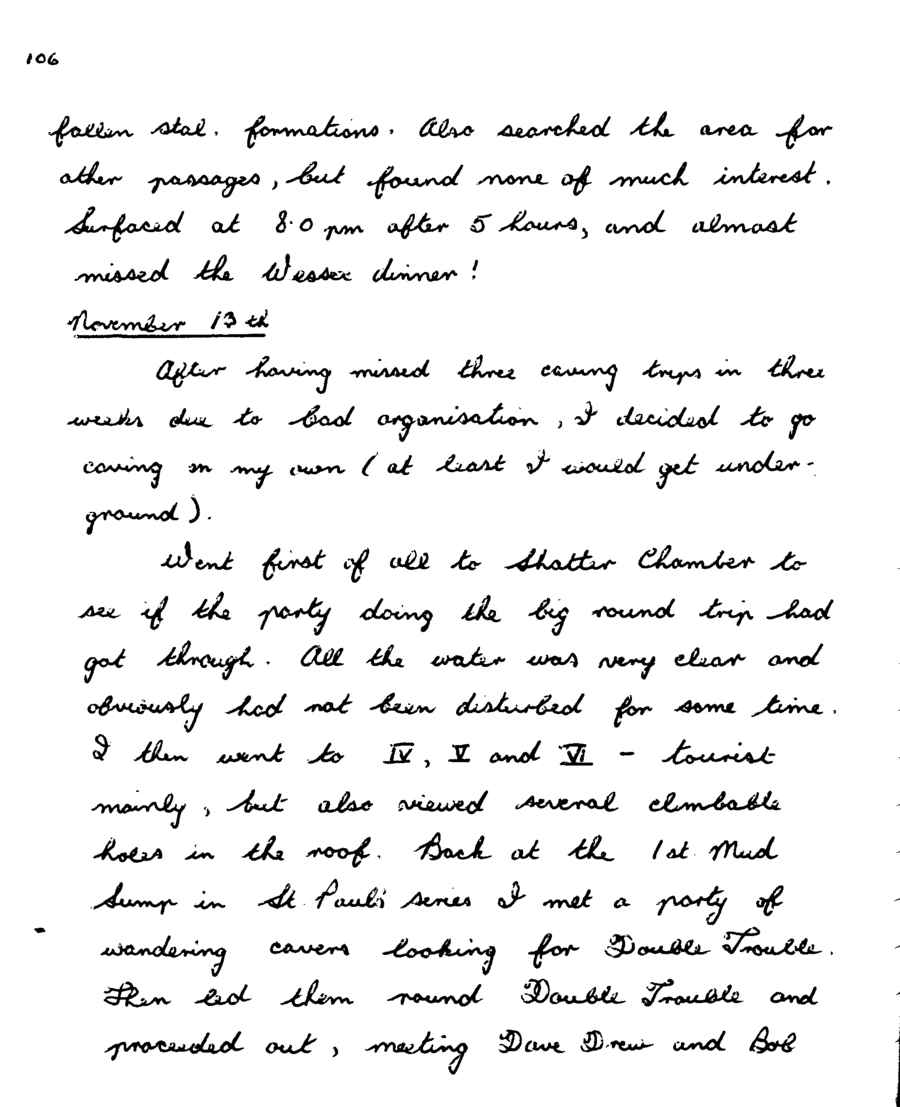 106
fallen stal. formations. Also searched the area for
other passages, but found none of much interest.
Surfaced at 8.0 pm after 5 hours, and almost
missed the Wessex dinner!
November 13th
After having missed three caving trips in three
weeks due to bad organisation, I decided to go
caving on my own (at least I would get under-
ground).
Went first of all to Shatter Chamber to
see if the party doing the big round trip had
got through. All the water was very clear and
obviously had not been disturbed for some time.
I then went to IV, V and VI - tourist
mainly, but also viewed several climbable
holes in the roof. Back at the 1st Mud
Sump in St. Paul's series I met a party of
wandering cavers looking for Double Trouble.
Then led them round Double Trouble and
proceeded out, meeting Dave Drew and Bob